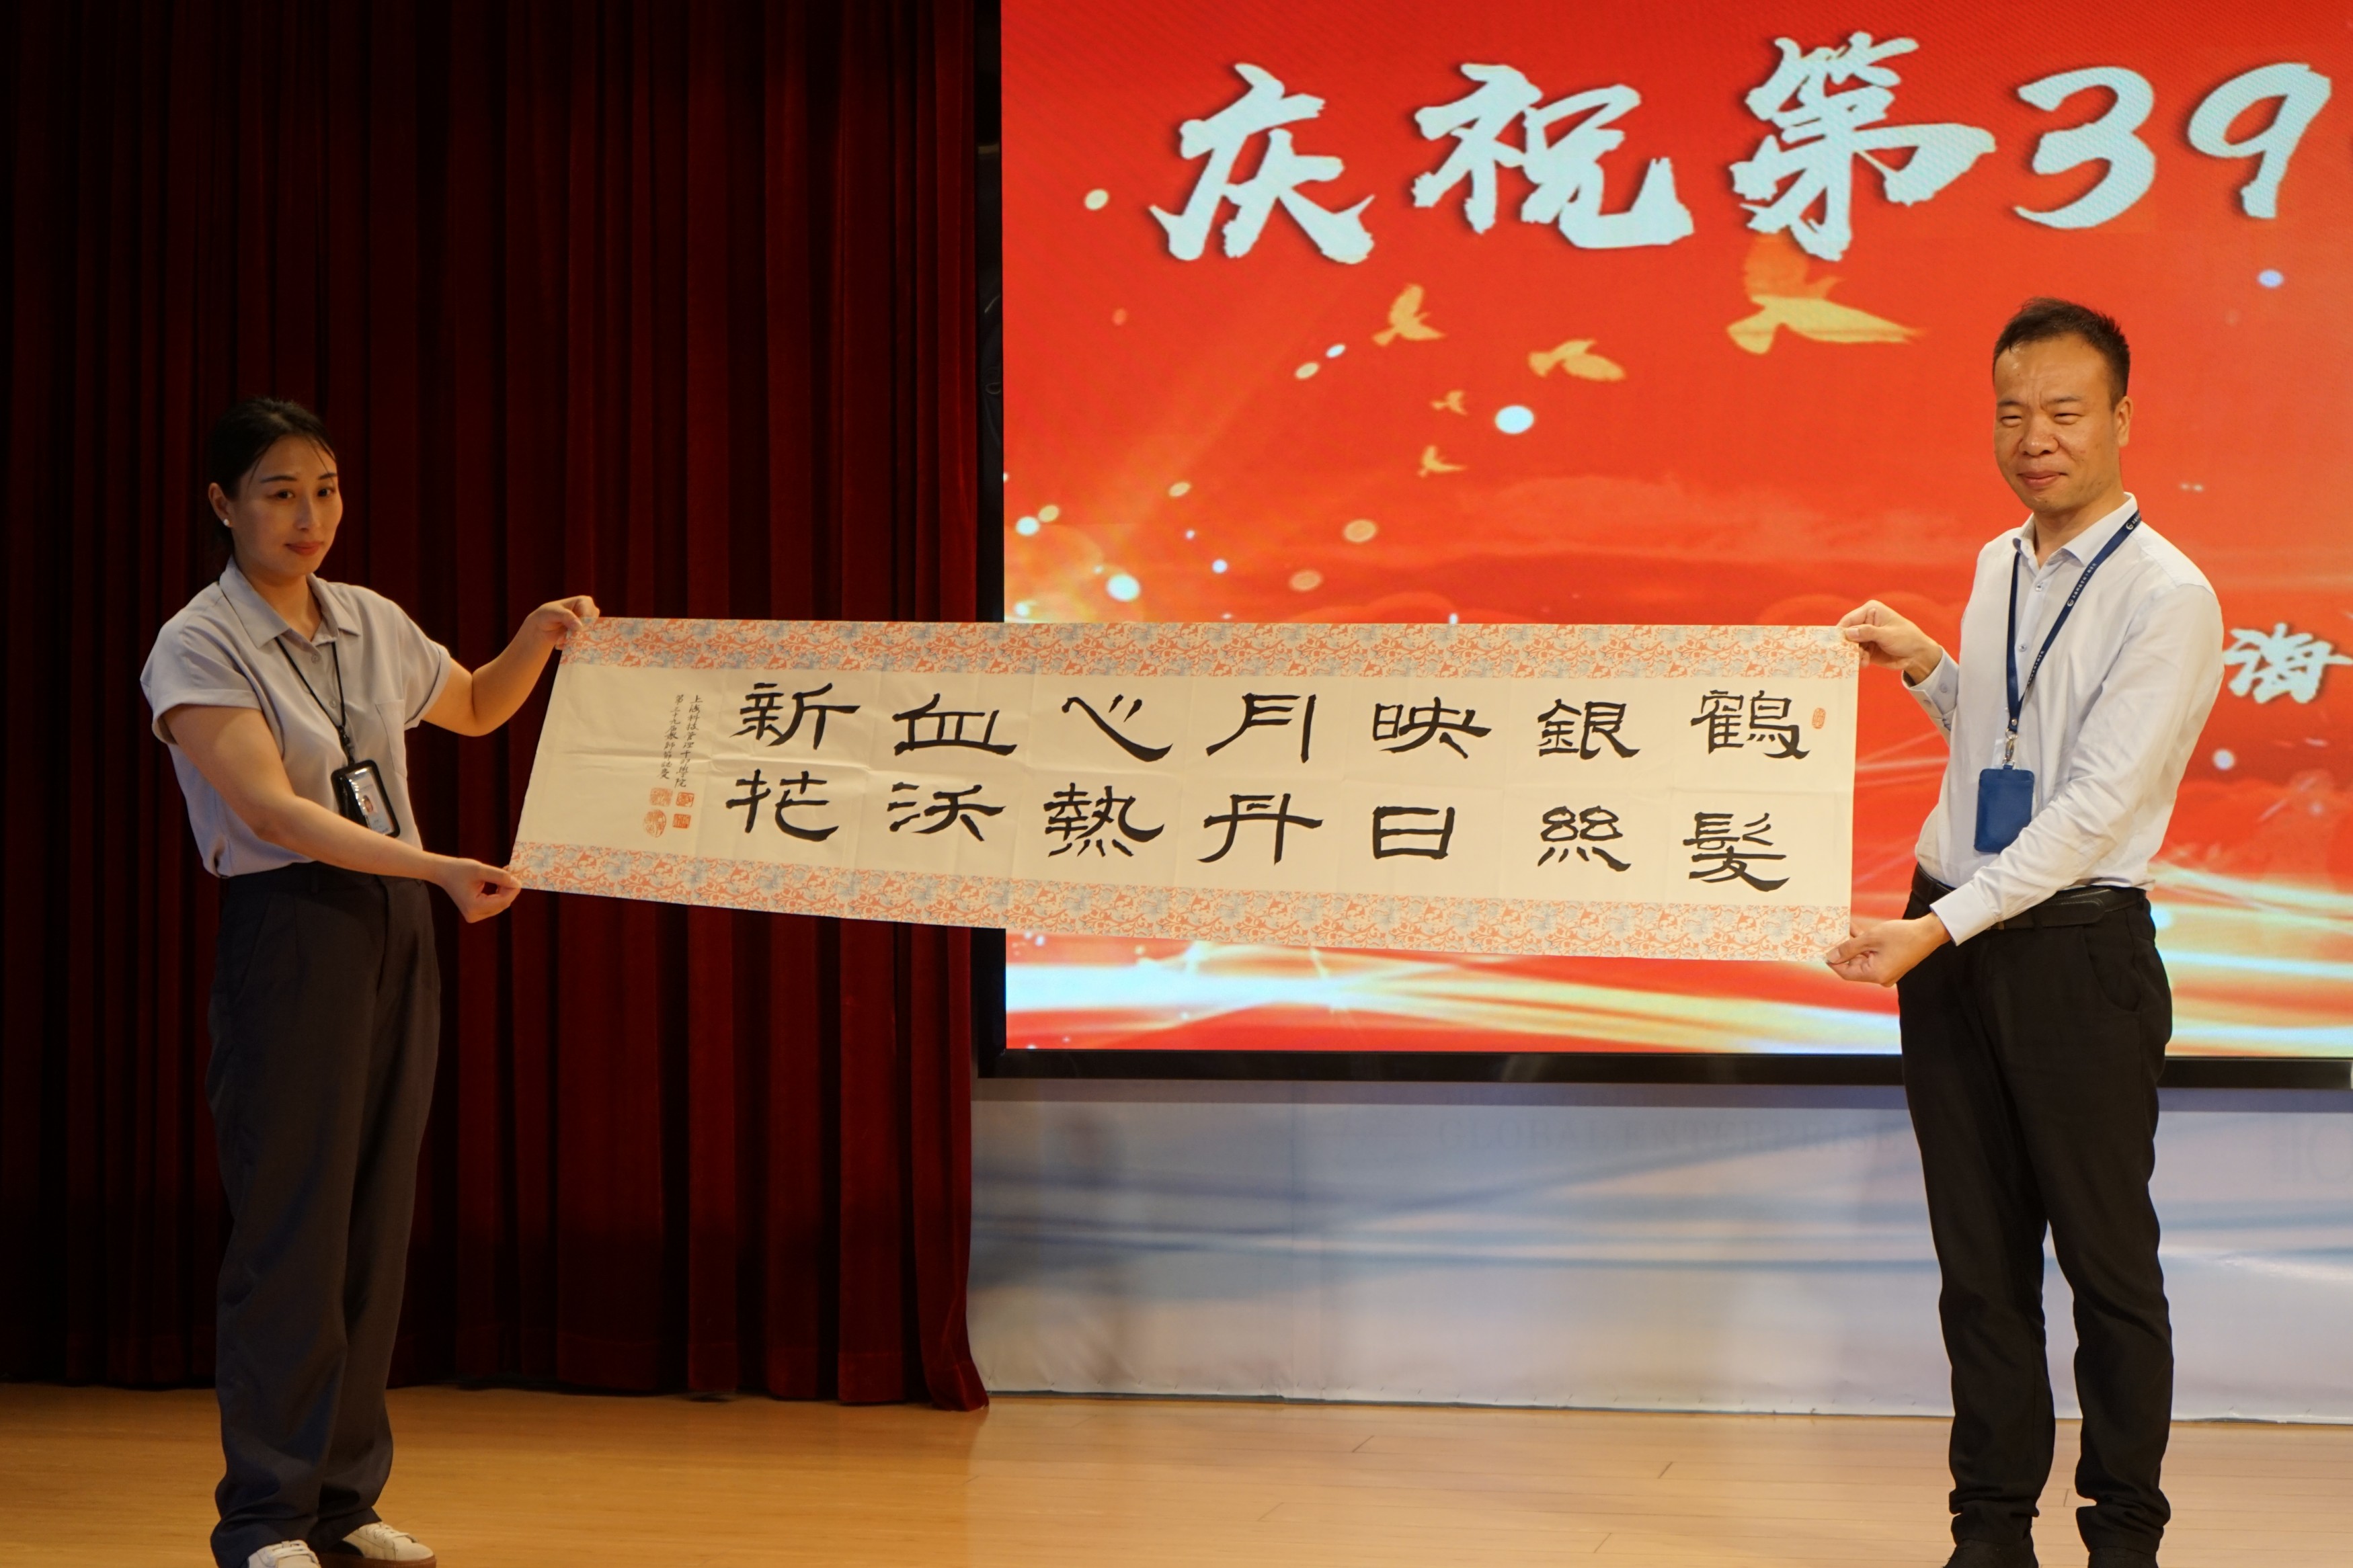 庆祝第39
海
鶴髮
銀絲
映日
月丹
心熱
血沃
新花
上海科技管理干部學院
第三十九届教師節誌慶